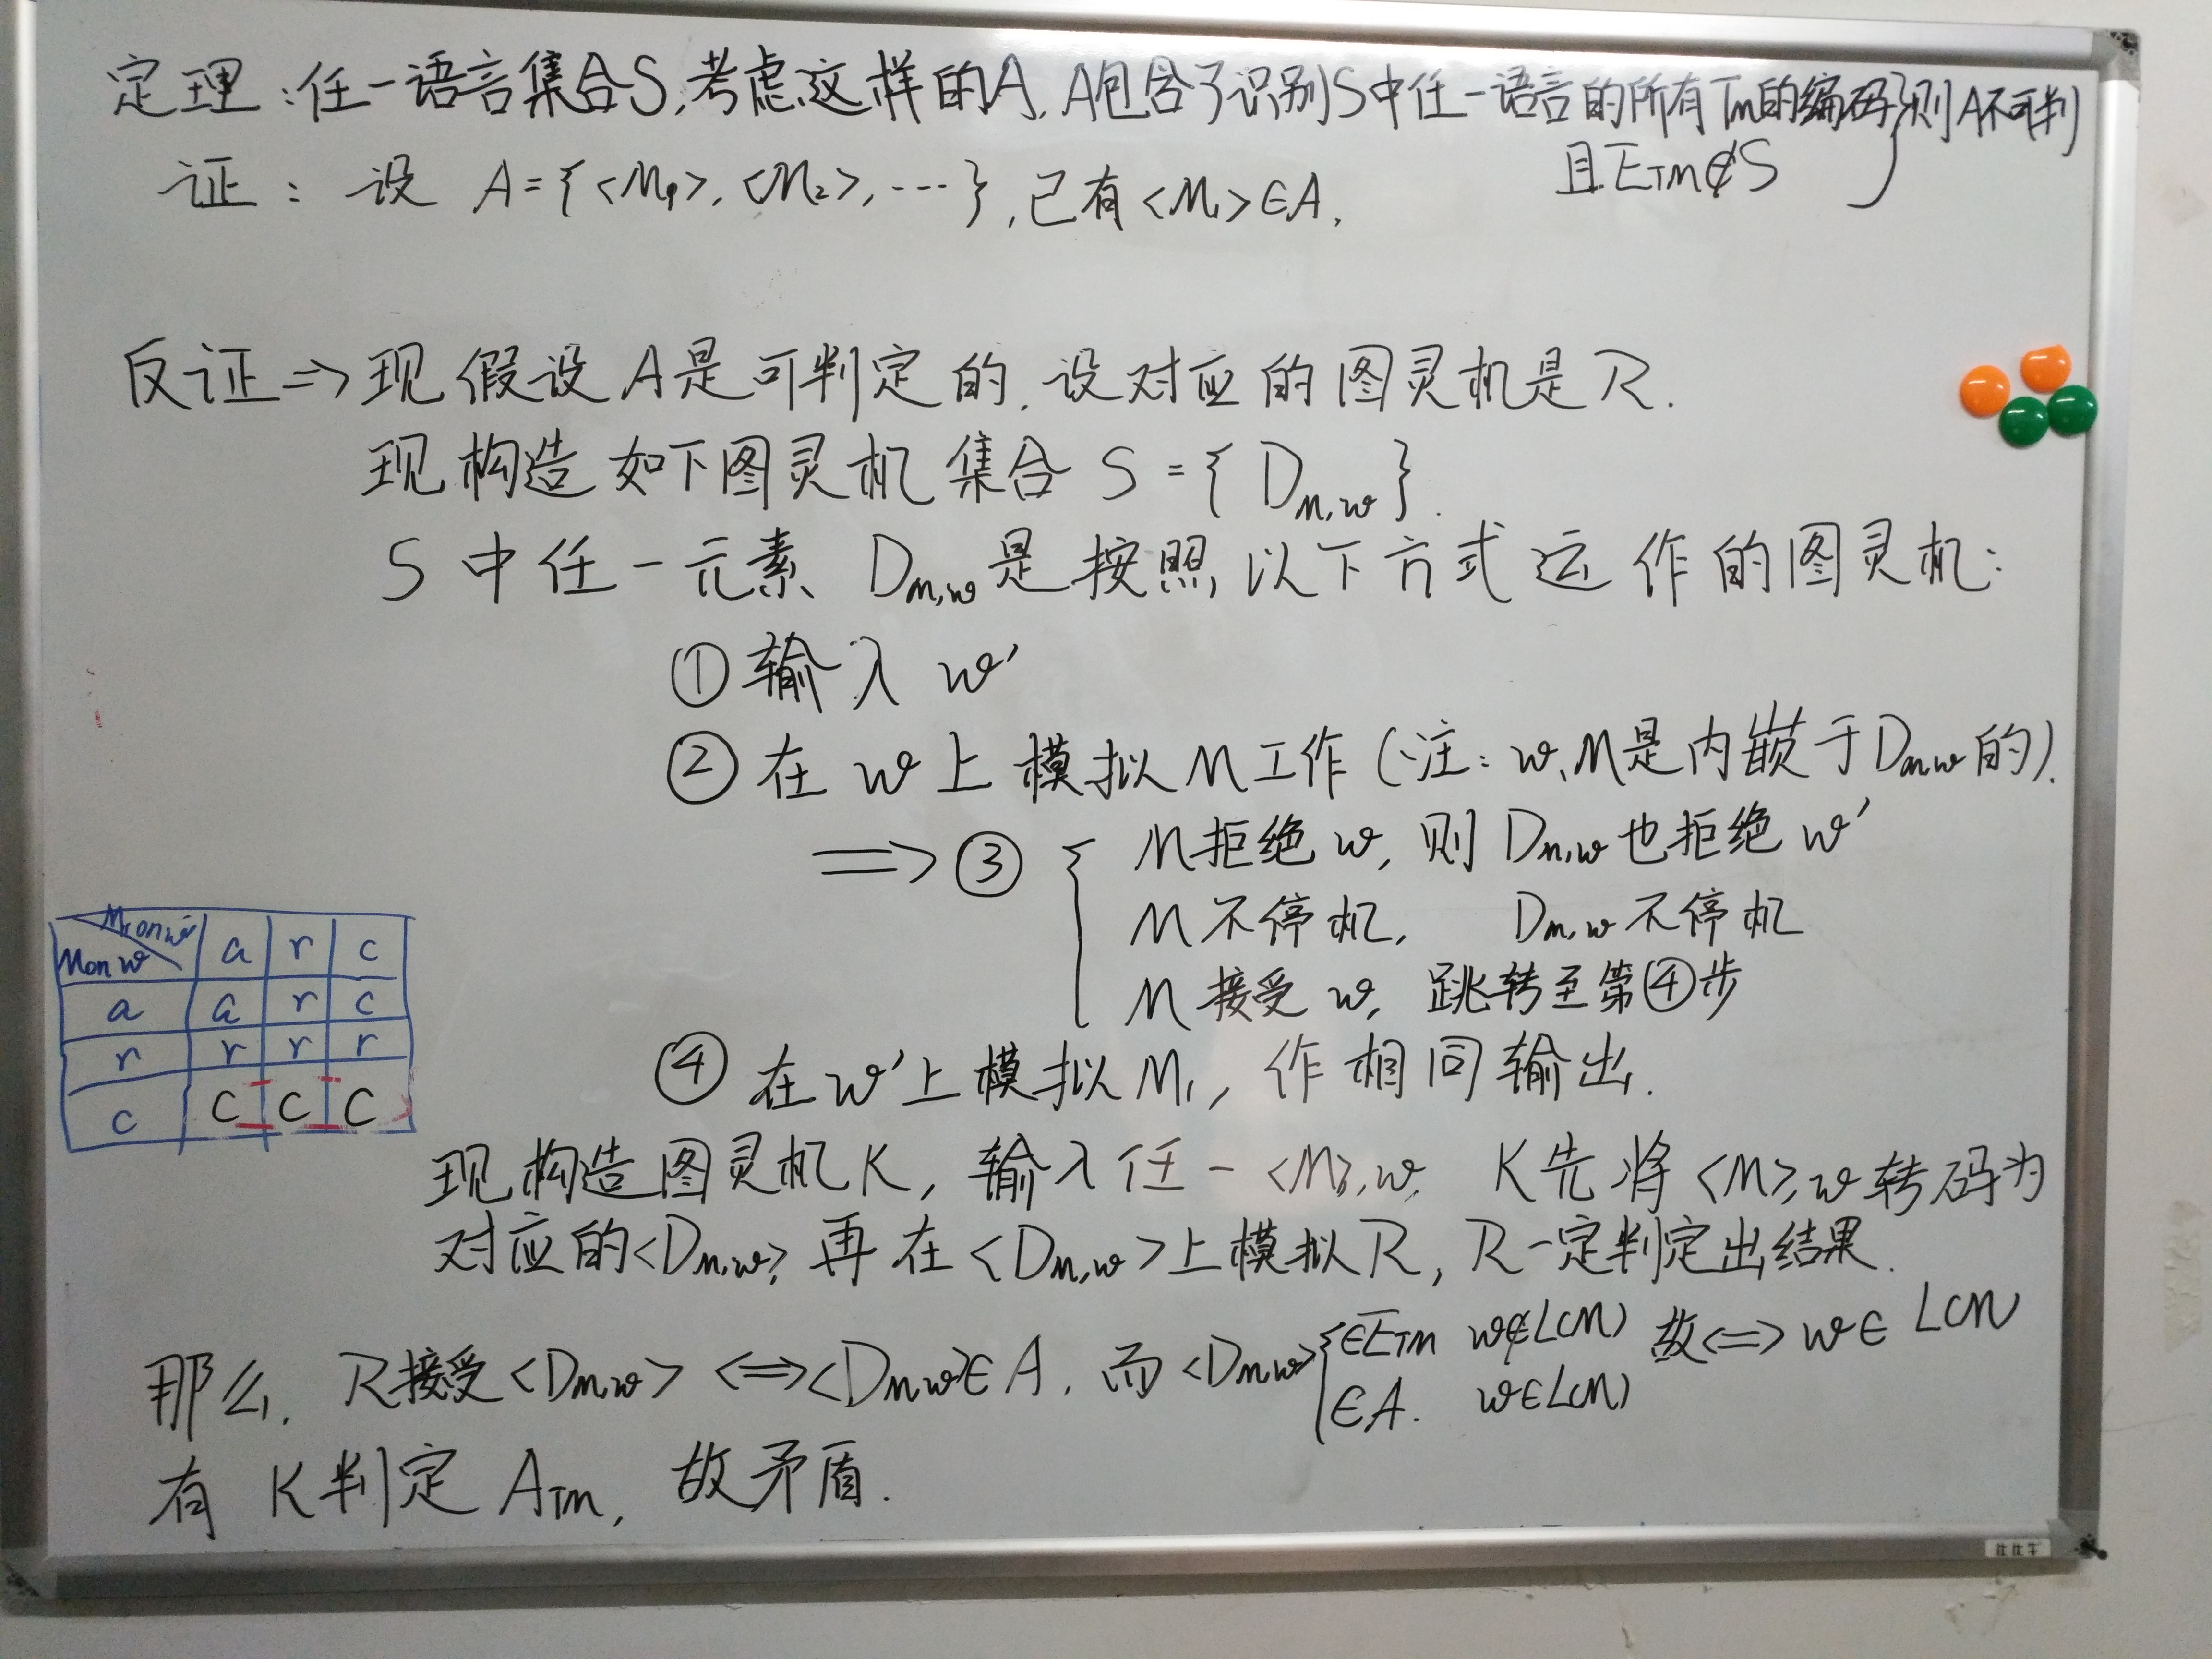 定理：任一语言集合S,考虑这样的A, A包含了识别S中任一语言的所有Tm的编码}则A不可判
且ETM∉S
证：设 A={<M₁>,<M₂>,…},已有<M₁>∈A,
反证⇒现假设A是可判定的,设对应的图灵机是R.
现构造如下图灵机集合 S={Dm,w}.
S中任一元素 Dm,w是按照以下方式运作的图灵机:
①输入 w'
②在 w上模拟M工作(注:w,M是内嵌于Dm,w的).
⇒③{ M拒绝w, 则 Dm,w也拒绝w'
M不停机, Dm,w不停机
M接受w, 跳转至第④步
④在w'上模拟M₁, 作相同输出.
M₁ on w'
M on w a r c
a a r c
r r r r
c C C C
现构造图灵机K, 输入任一<M>,w, K先将<M>,w转码为
对应的<Dm,w>, 再在<Dm,w>上模拟R, R一定判定出结果.
那么, R接受<Dm,w> ⟺ <Dm,w>∈A, 而<Dm,w>{∈ETM w∉L(M) 故⟺w∈L(M)
∈A. w∈L(M)
有 K判定 ATM, 故矛盾.